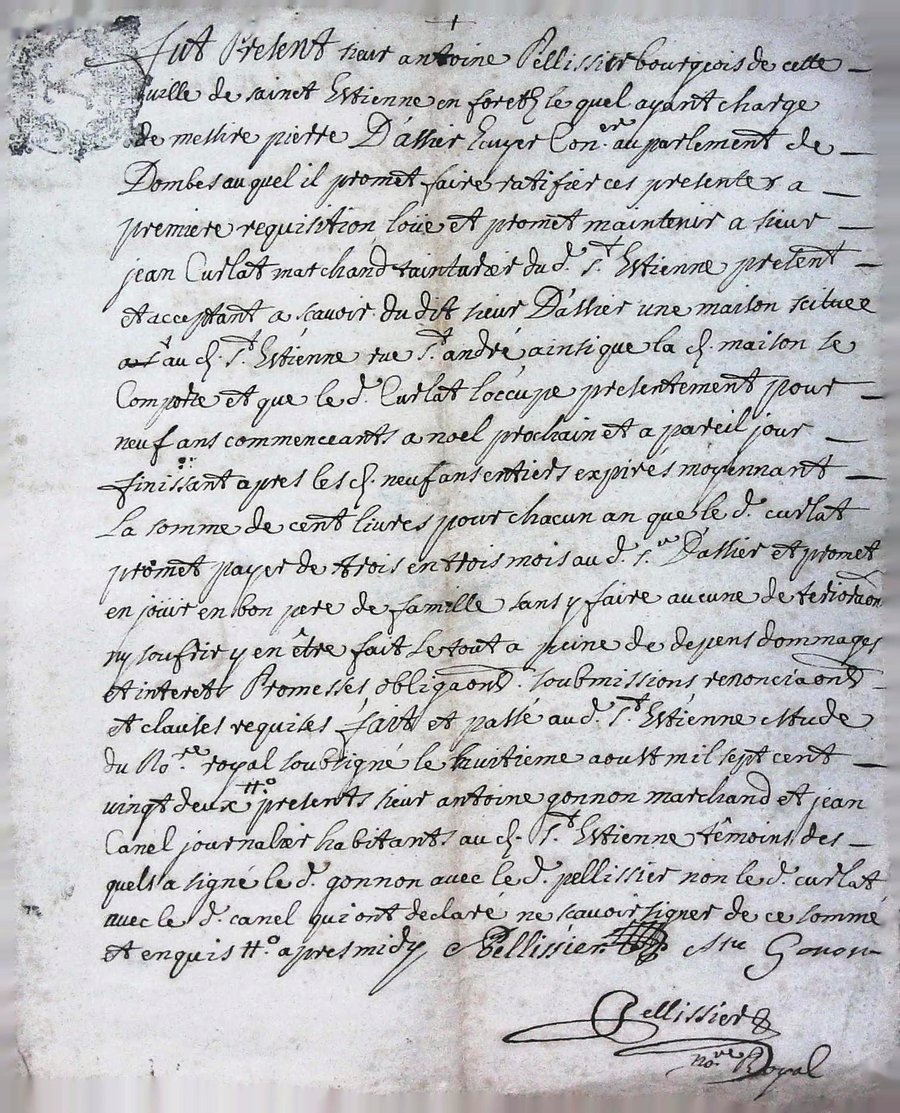 +
Fut Present sieur antoine Pellissier bourgeois de cette
ville de sainct Estienne en foretz le quel ayant charge
de messire pierre D'assier Ecuyer Con.er au parlement de
Dombes au quel il promet faire ratifier ces presentes a
premiere requisition loüe et promet maintenir a sieur
jean Curlat marchand tainturier du d. s.t Estienne present
et acceptant a scavoir du dit sieur D'assier une maison scituee
au d. s.t Estienne rue s.t andré ainsi que la d. maison se
Comporte et que le d. Curlat l'occupe presentement pour
neuf ans commenceants a noel prochain et a pareil jour
finissant apres les d. neuf ans entiers expirés moyennant
La somme de cent livres pour chacun an que le d. curlat
promet payer de trois en trois mois au d. s.r D'assier et promet
en joüir en bon pere de famille sans y faire aucune deteriora͠on
ny soufrir y en être fait le tout a peine de depens dommages
et interets Promesses obliga͠ons soubmissions renoncia͠ons
et clauses requises fait et passé au d. s.t Estienne etude
du No.re royal soubsigné le huitieme aoust mil sept cent
vingt deux presents sieur antoine gonnon marchand et jean
Canel journalier habitants au d. s.t Estienne têmoins des
quels a signé le d. gonnon avec le d. pellissier non le d. curlat
avec le d. canel qui ont declaré ne scavoir signer de ce sommé
et enquis apres midy Pellissier Gonon
Pellissier
no.re Royal